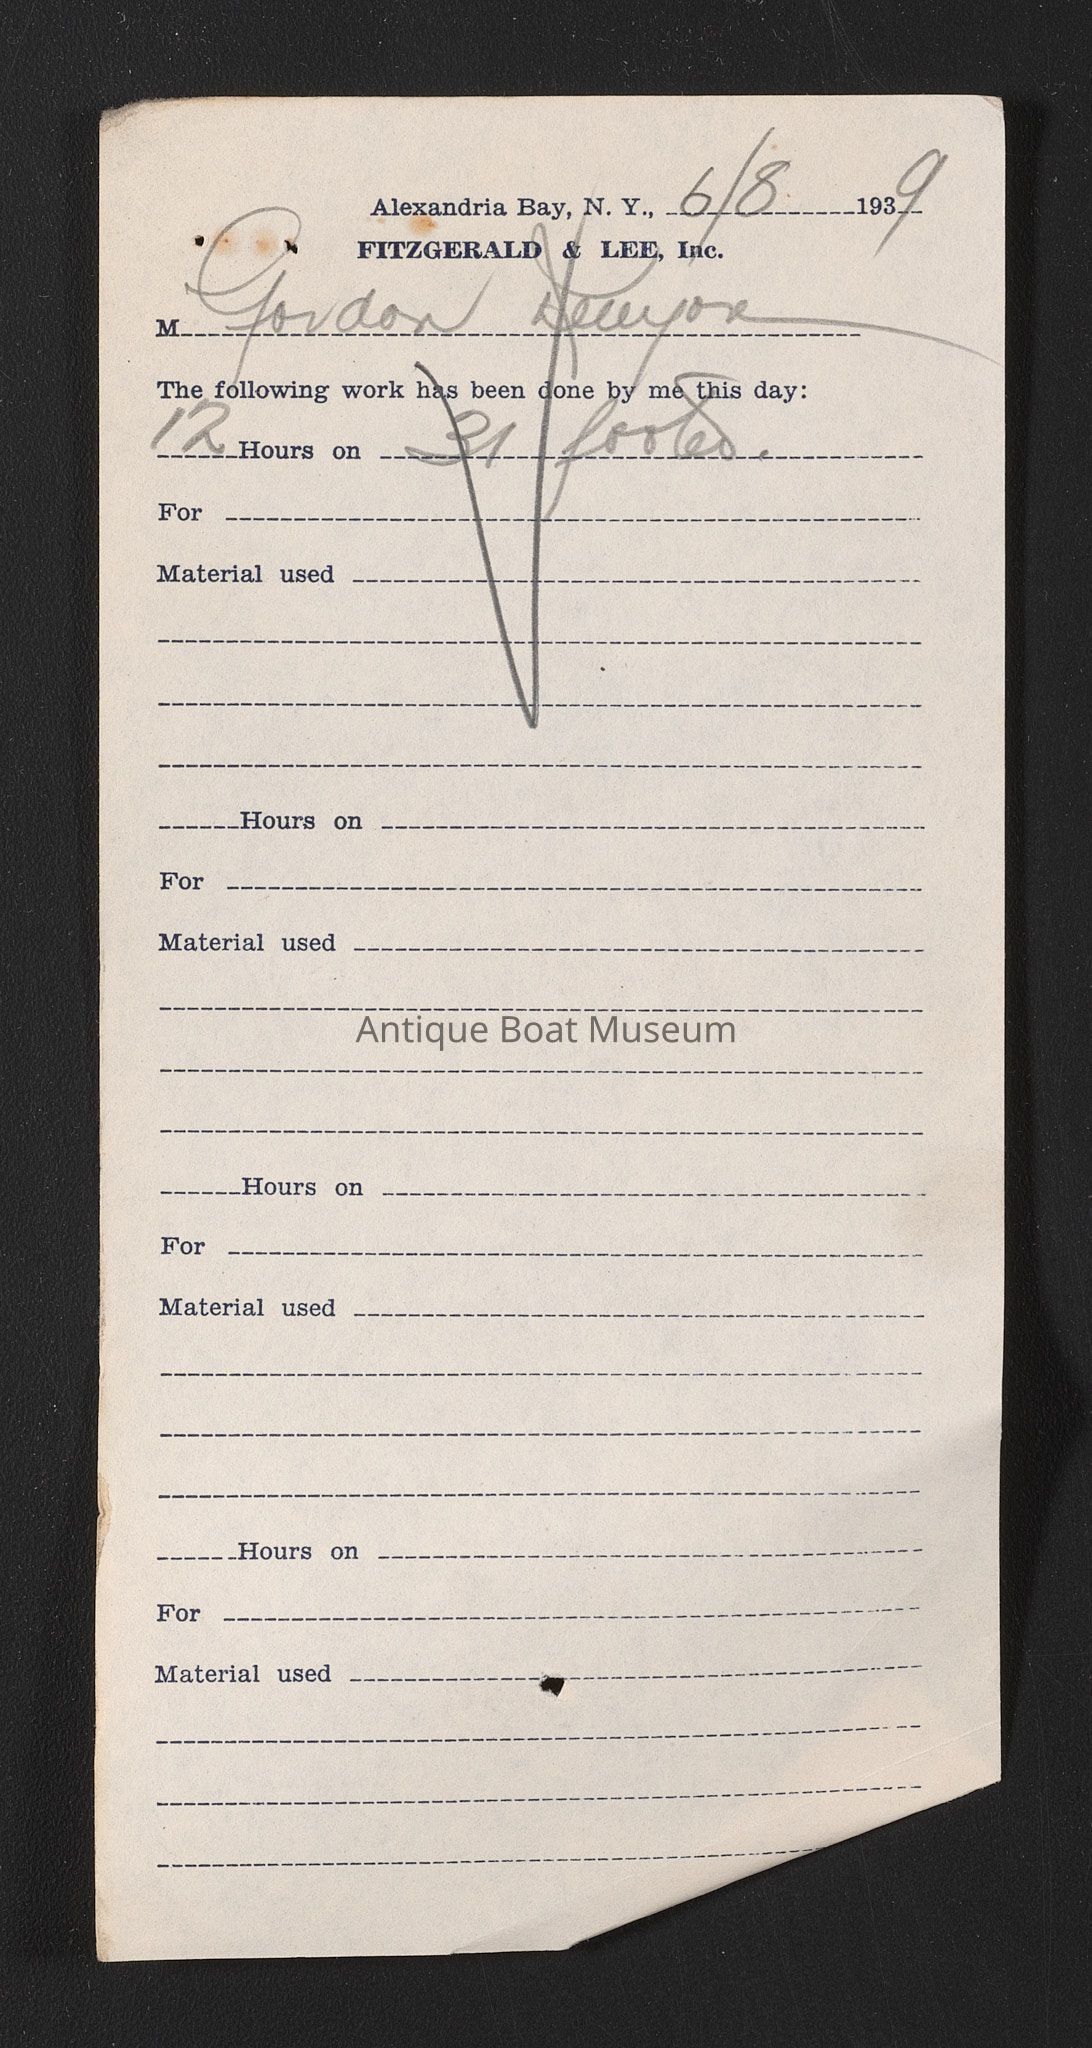 Alexandria Bay, N. Y., 6/8 1939
FITZGERALD & LEE, Inc.
M Gordon Kenyon
The following work has been done by me this day:
12 Hours on 31 footer.
For
Material used
Hours on
For
Material used
Antique Boat Museum
Hours on
For
Material used
Hours on
For
Material used